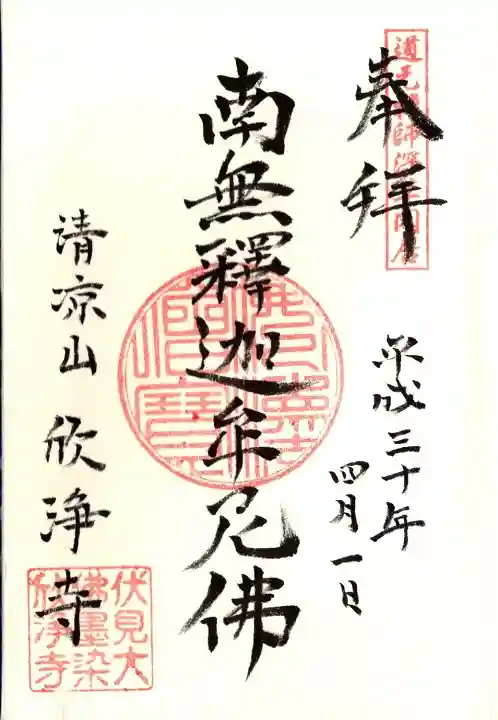 奉拝
平成三十年
四月一日
南無釋迦牟尼佛
請凉山 欣浄寺
伏見大
佛墨染
欣浄寺